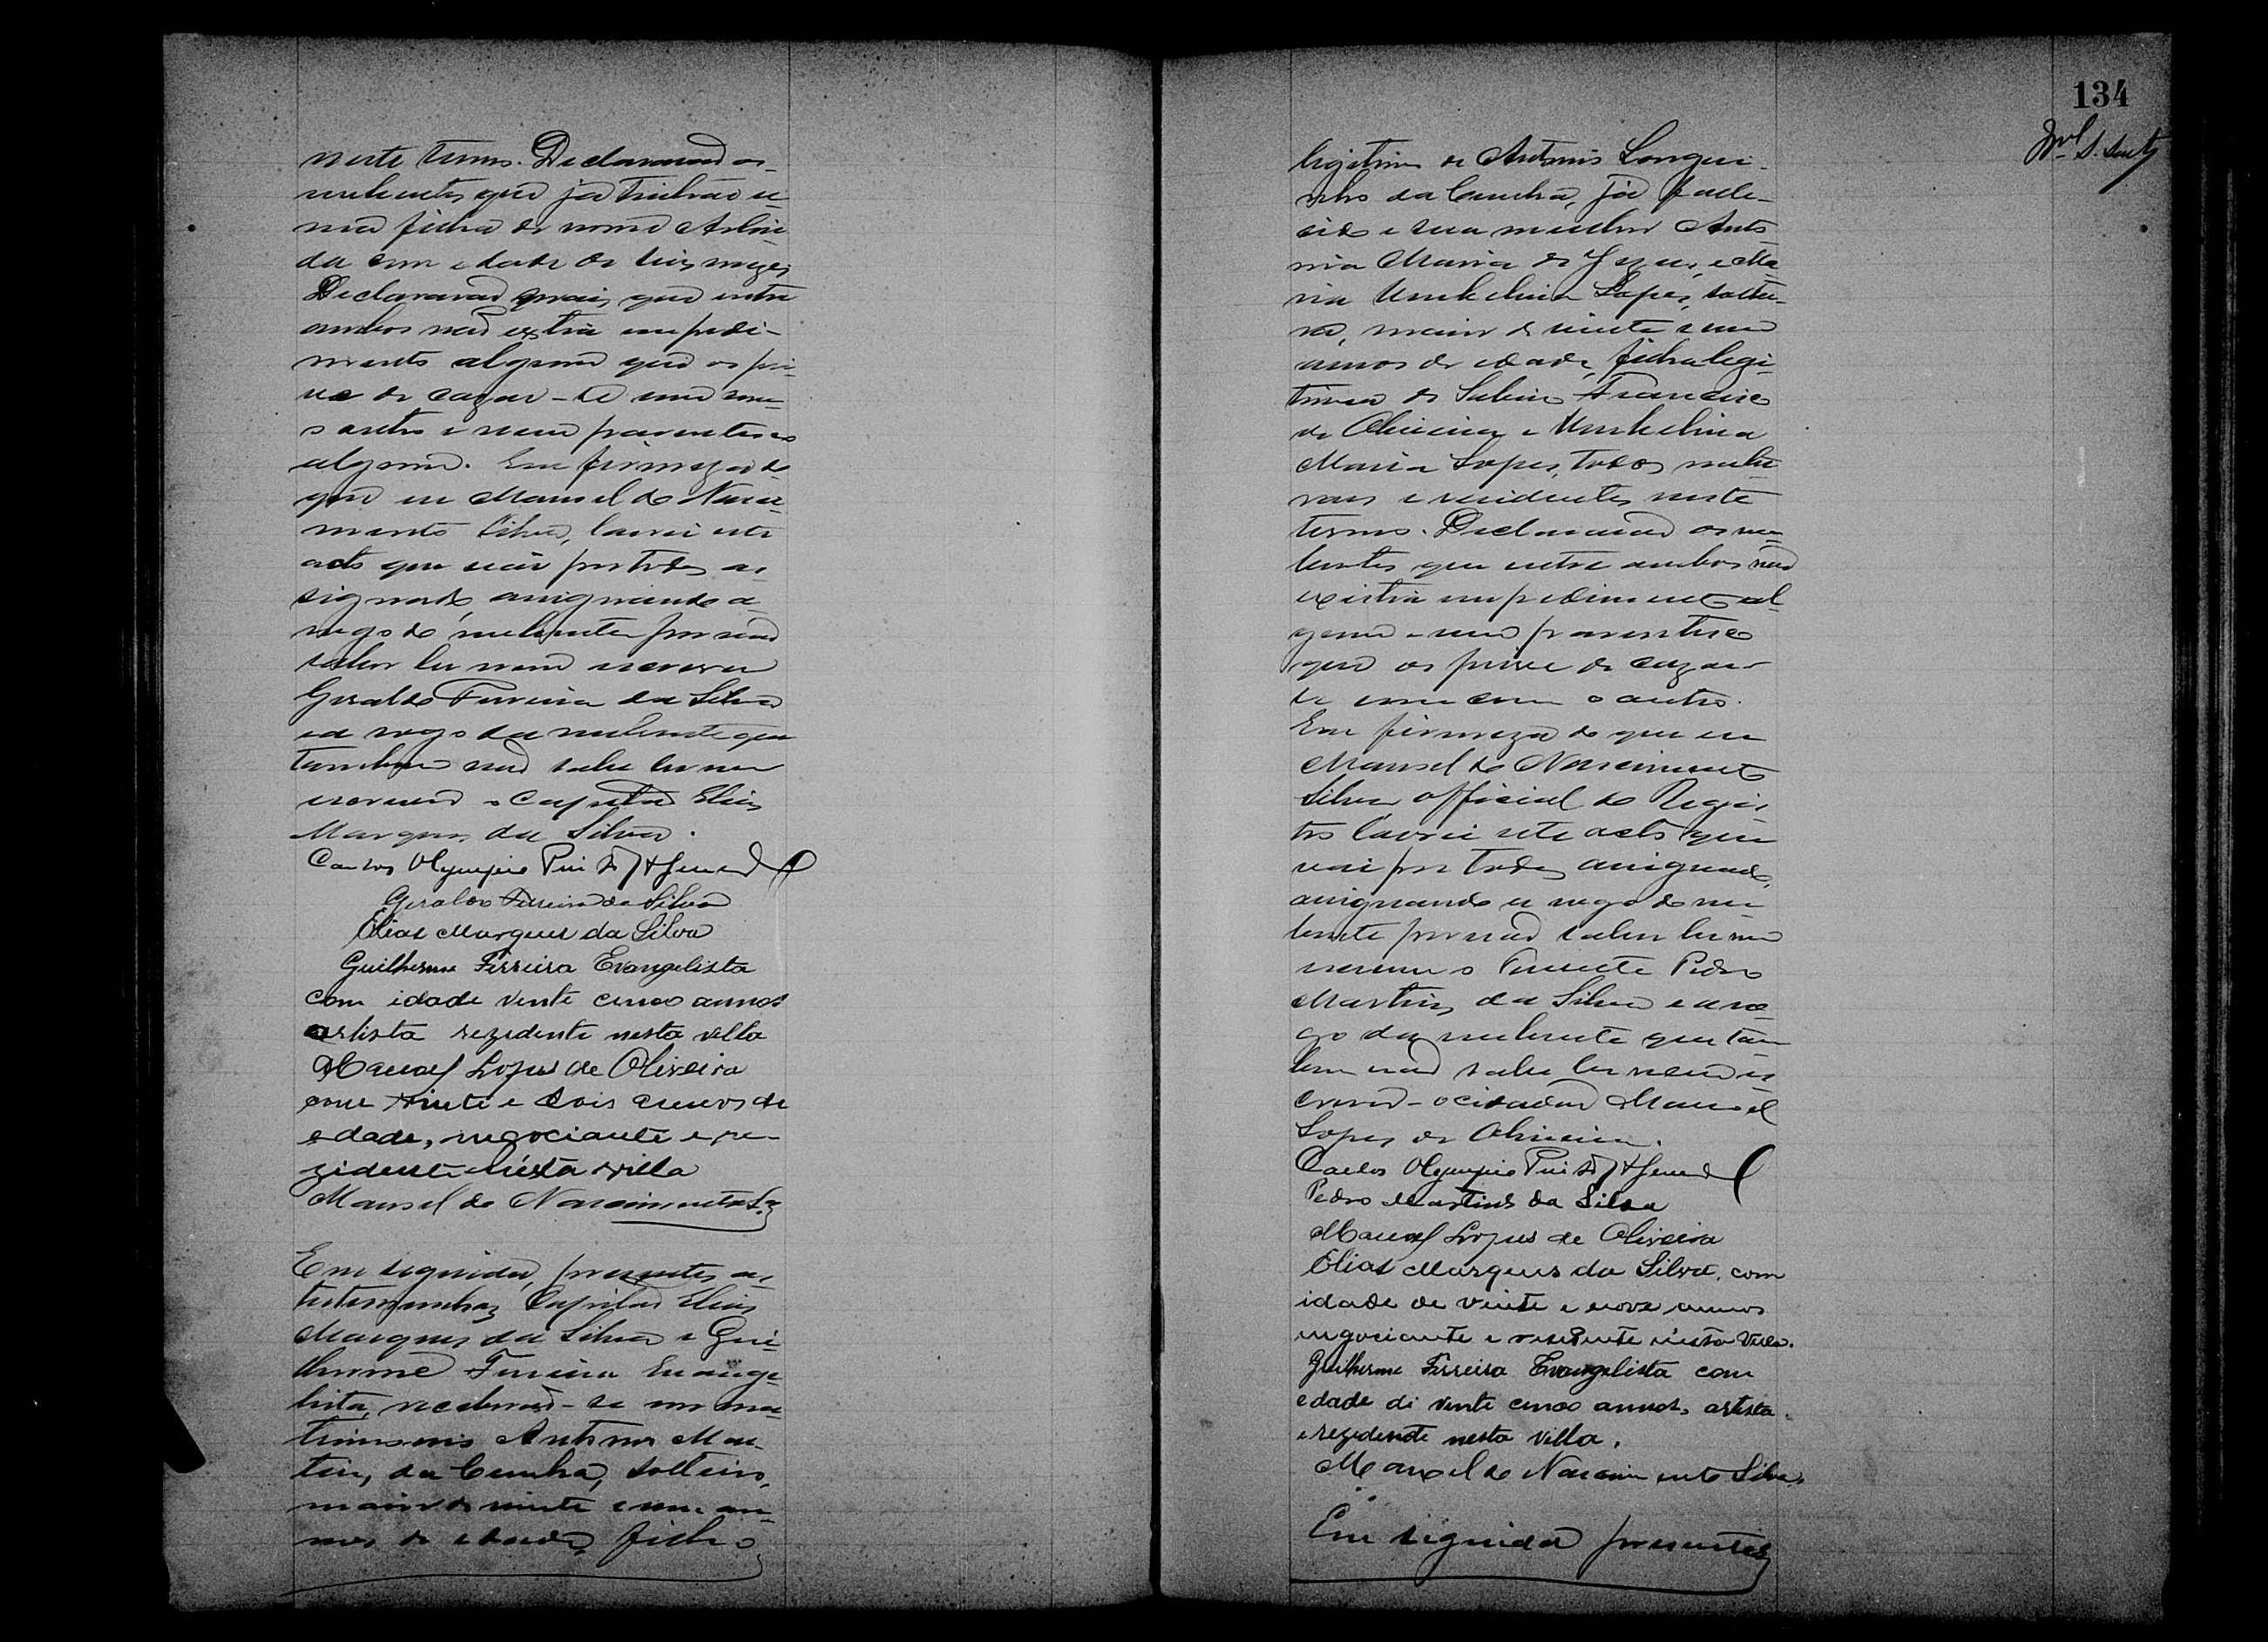 neste termo. Declararaõ os
nubentes que ja tinhaõ u-
ma filha de nome Arlin-
da com idade de seis mezes
Declararaõ mais que entre
ambos naõ existia impedi-
mento algum que os pri-
ve de cazar-se um com
o outro e nem parentesco
algum. Em firmeza do
que eu Manoel do Nasci-
mento Silva, lavrei este
acto que vai por todos as-
signado, assignando a
rogo do nubente por naõ
saber ler nem escrever
Geraldo Ferreira da Silva
e a rogo da nubente que
tambem naõ sabe ler nem
escrever o Capitaõ Elias
Marques da Silva.
Carlos Olympio
Geraldo Ferreira da Silva
Elias Marques da Silva
Guilherme Ferreira Evangelista
com idade vente cinco annos
artista rezidente nesta villa
Manoel Lopes de Oliveira
com vinte e dois annos de
edade, negociante e re-
zidente n'esta villa
Manoel do Nascimento Sa
Em seguida, presentes as
testemunhas Capitaõ Elias
Marques da Silva e Gui-
lherme Ferreira Evange-
lista, receberaõ-se em ma-
trimonio Antonio Mar-
tins da Cunha, solteiro,
maior de vinte e um an-
nos de edade, filho
134
legitimo de Antonio Longui-
nho da Cunha, já falle-
cido e sua mulher Anto-
nia Maria de Jezus, e Ma-
ria Umbelina Lopes, soltei-
ra, maior de vinte e um
annos de edade, filha legi-
tima de Sabino Francisco
de Oliveira e Umbelina
Maria Lopes, todos natu-
raes e residentes neste
termo. Declararaõ os nu-
bentes que entre ambos naõ
existia impedimento al-
gum e nem parentesco
que os prive de cazar-
se um com o outro.
Em firmeza do que eu
Manoel do Nascimento
Silva official do Regis-
tro lavrei este acto que
vai por todos assignado,
assignando a rogo do nu-
bente por naõ saber ler nem
escrever o Tenente Pedro
Martins da Silva e a ro-
go da nubente que tam-
bem naõ sabe ler nem es-
crever o cidadaõ Manoel
Lopes de Oliveira.
Carlos Olympio
Pedro Martins da Silva
Manoel Lopes de Oliveira
Elias Marques da Silva, com
idade de vinte e nove annos
negociante e residente n'esta Villa.
Guilherme Ferreira Evangelista com
edade di vente cinco annos, artista
e rezedente nesta villa.
Manoel do Nascimento Silva
Em seguida presentes